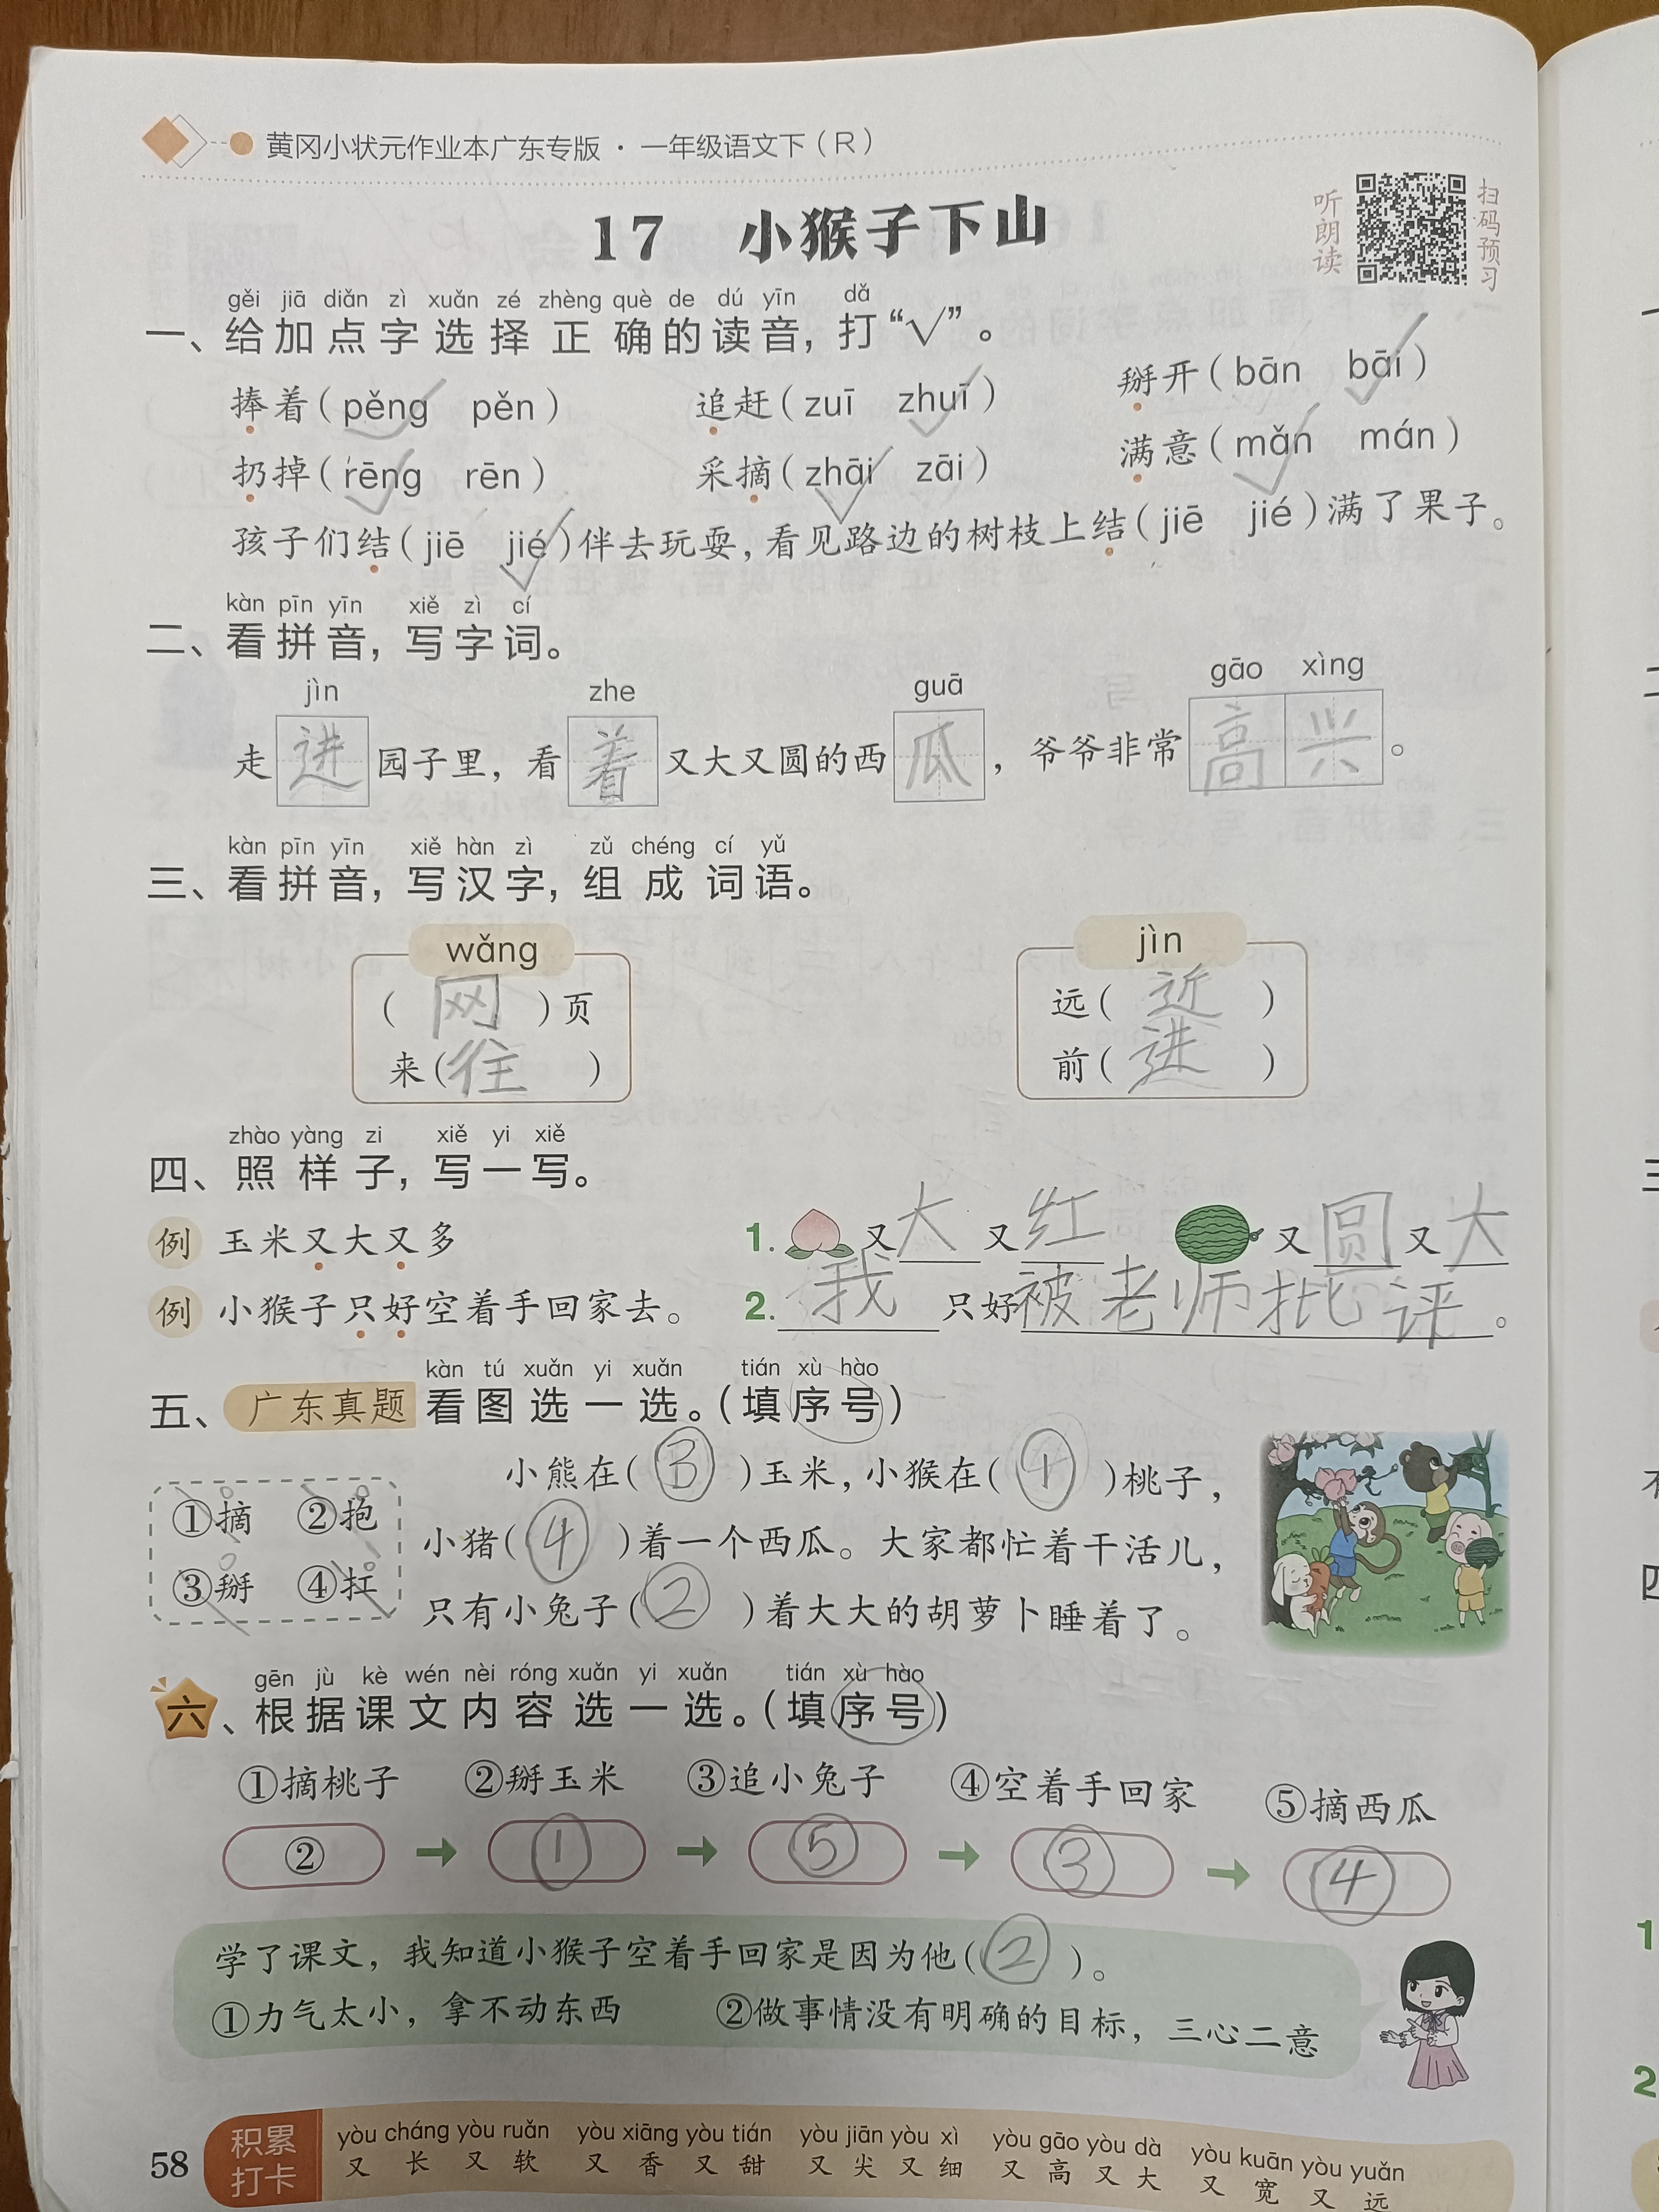 黄冈小状元作业本广东专版·一年级语文下（R）
17 小猴子下山
听朗读
扫码预习
gěi jiā diǎn zì xuǎn zé zhèng què de dú yīn dǎ
一、给加点字选择正确的读音，打“√”。
捧着（pěng✓ pěn） 追赶（zuī zhuī✓） 掰开（bān bāi✓）
扔掉（rēng✓ rēn） 采摘（zhāi✓ zāi） 满意（mǎn✓ mán）
孩子们结（jiē jié✓）伴去玩耍，看见路边的树枝上结（jiē jié）满了果子。
kàn pīn yīn xiě zì cí
二、看拼音，写字词。
jìn zhe guā gāo xìng
走进园子里，看着又大又圆的西瓜，爷爷非常高兴。
kàn pīn yīn xiě hàn zì zǔ chéng cí yǔ
三、看拼音，写汉字，组成词语。
wǎng jìn
（网）页 远（近）
来（往） 前（进）
zhào yàng zi xiě yi xiě
四、照样子，写一写。
例 玉米又大又多 1. 又大又红 又圆又大
例 小猴子只好空着手回家去。 2. 我只好被老师批评。
kàn tú xuǎn yi xuǎn tián xù hào
五、广东真题 看图选一选。（填序号）
小熊在（③）玉米，小猴在（①）桃子，
①摘 ②抱
小猪（④）着一个西瓜。大家都忙着干活儿，
③掰 ④扛
只有小兔子（②）着大大的胡萝卜睡着了。
gēn jù kè wén nèi róng xuǎn yi xuǎn tián xù hào
六、根据课文内容选一选。（填序号）
①摘桃子 ②掰玉米 ③追小兔子 ④空着手回家 ⑤摘西瓜
② → ① → ⑤ → ③ → ④
学了课文，我知道小猴子空着手回家是因为他（②）。
①力气太小，拿不动东西 ②做事情没有明确的目标，三心二意
58
积累打卡
yòu cháng yòu ruǎn yòu xiāng yòu tián yòu jiān yòu xì yòu gāo yòu dà yòu kuān yòu yuǎn
又长又软 又香又甜 又尖又细 又高又大 又宽又远